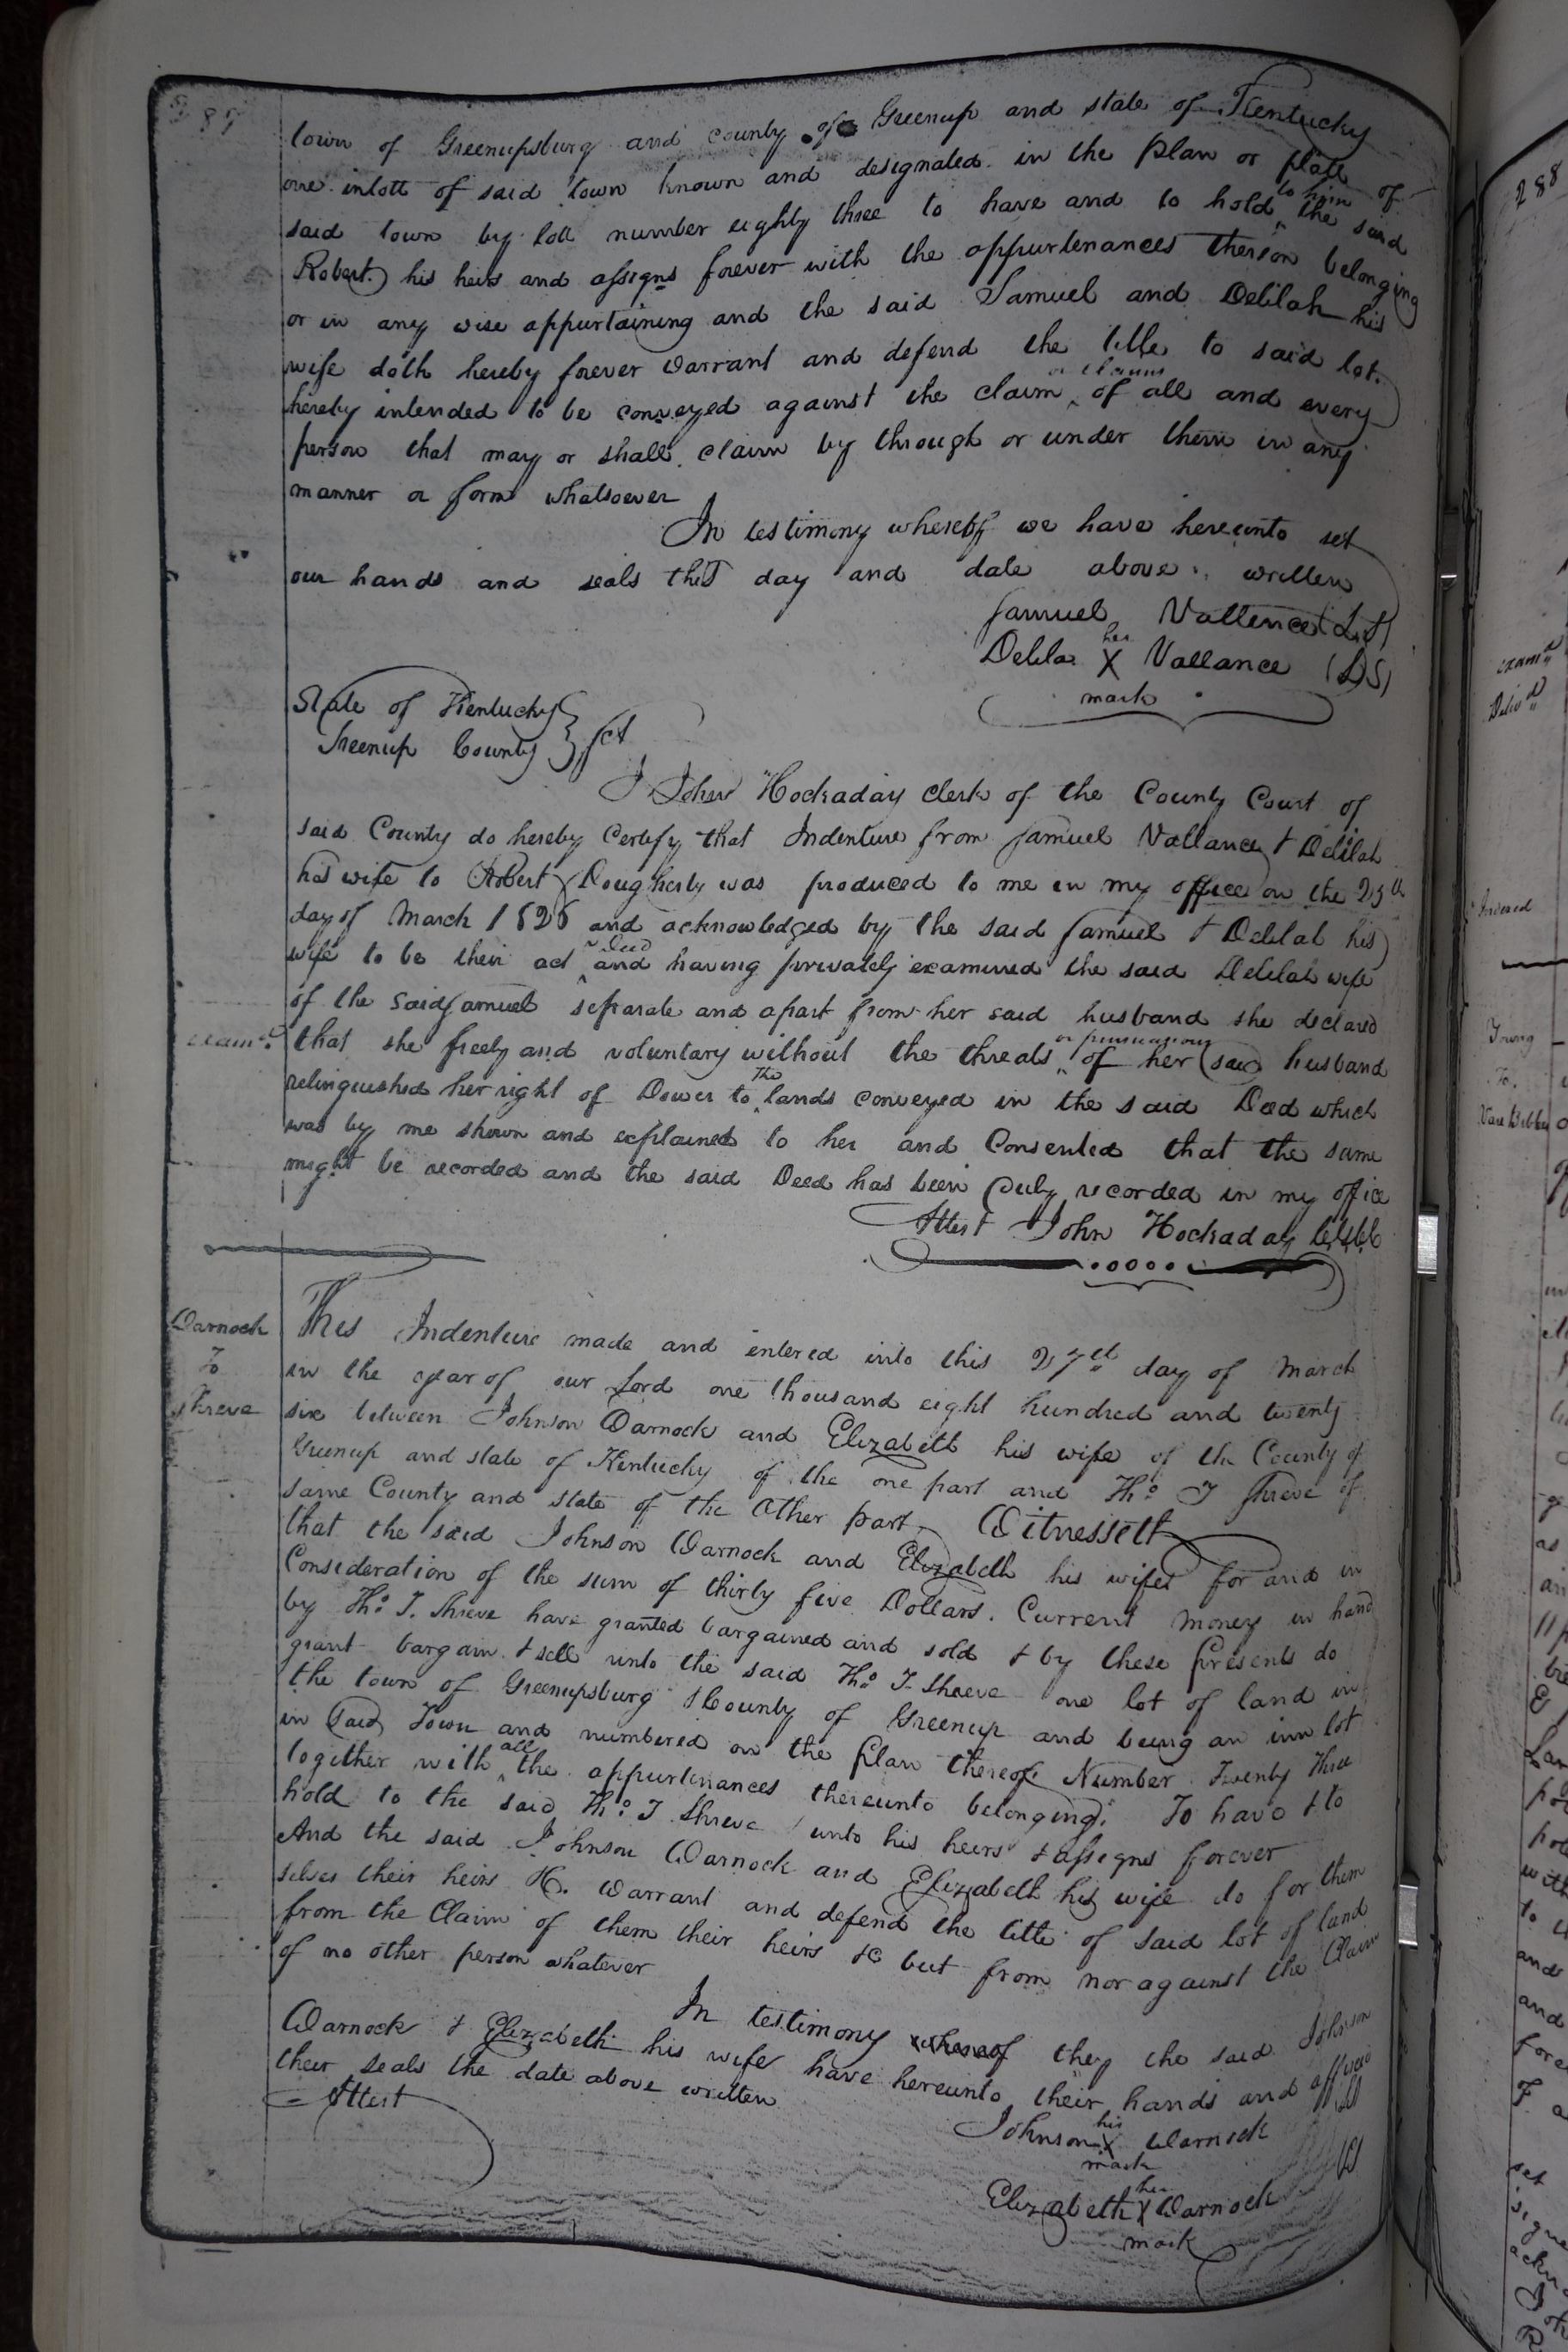 287
town of Greenupsburg and county of Greenup and state of Kentucky
one inlott of said town known and designated in the plan or platt of
said town by lott number eighty three to have and to hold to him the said
Robert his heirs and assigns forever with the appurtenances thereon belonging
or in any wise appurtaining and the said Samuel and Delilah his
wife doth hereby forever Warrant and defend the title to said lot
hereby intended to be conveyed against the claim or claims of all and every
person that may or shall claim by through or under them in any
manner or form whatsoever
In testimony whereof we have hereunto set
our hands and seals the day and date above written
Samuel Vallence (L.S)
Delila her X Vallance (LS)
mark
State of Kentucky
Greenup County } sct
I John Hockaday Clerk of the County Court of
said County do hereby Certify that Indenture from Samuel Vallance & Delilah
his wife to Robert Dougherty was produced to me in my office on the 25th
day of March 1826 and acknowledged by the said Samuel & Delilah his
wife to be their act & deed and having privately examined the said Delilah wife
of the said Samuel separate and apart from her said husband she declared
Exam.d
that she freely and voluntary without the threats or persuasions of her said husband
relinquished her right of Dower to the lands conveyed in the said Deed which
was by me shown and explained to her and Consented that the same
might be recorded and the said Deed has been duly recorded in my office
Attest John Hockaday
Warnock
To
Shreve
This Indenture made and entered into this 27th day of March
in the year of our Lord one thousand eight hundred and twenty
six between Johnson Warnock and Elizabeth his wife of the County of
Greenup and state of Kentucky of the one part and Tho. T Shreve of
same County and state of the Other part Witnesseth
that the said Johnson Warnock and Elizabeth his wife for and in
Consideration of the sum of thirty five Dollars. Current money in hand
by Tho. T. Shreve have granted bargained and sold & by these presents do
grant bargain & sell unto the said Tho. T Shreve one lot of land in
the town of Greenupsburg & County of Greenup and being an inn lot
in said Town and numbered on the plan thereof Number Twenty three
together with all the appurtinances thereunto belonging. To have & to
hold to the said Tho. T Shreve unto his heirs & assigns forever
And the said Johnson Warnock and Elizabeth his wife do for them
selves their heirs &c. Warrant and defend the title of said lot of land
from the Claim of them their heirs &c but from nor against the Claim
of no other person whatever
In testimony whereof they the said Johnson
Warnock & Elizabeth his wife have hereunto their hands and affixed
their seals the date above written
Attest
Johnson his X Warnock
mark
Elizabeth her X Warnock
mark
288
Exam.d
Deliv.d
Young
To